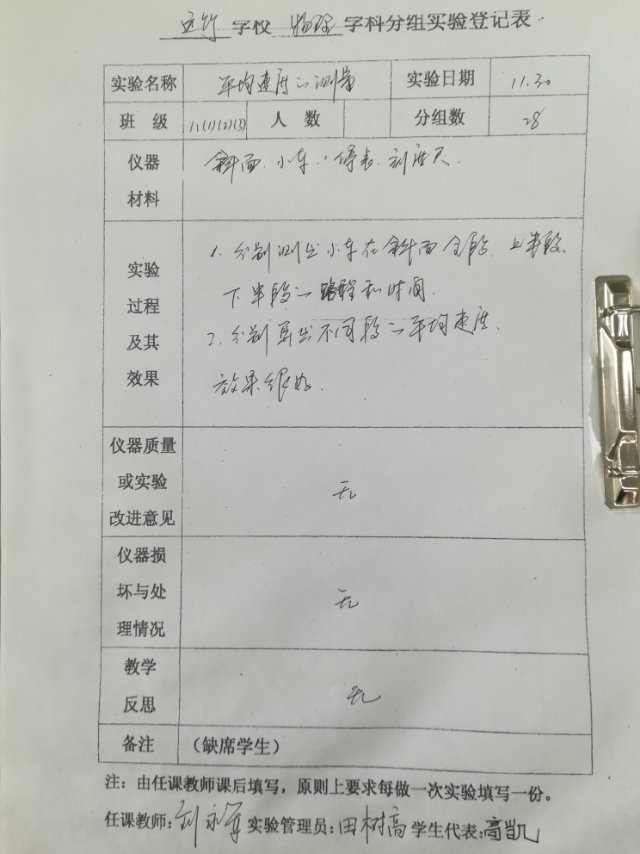 学校 物理 学科分组实验登记表
实验名称 平均速度的测量 实验日期 11.30
班 级 (1)(2)(3) 人 数 分组数 28
仪器
材料
斜面、小车、停表、刻度尺.
实验
过程
及其
效果
1. 分别测出小车在斜面全段、上半段、
下半段的路程和时间.
2. 分别算出不同段的平均速度.
效果很好.
仪器质量
或实验
改进意见
无
仪器损
坏与处
理情况
无
教学
反思
无
备注 (缺席学生)
注：由任课教师课后填写，原则上要求每做一次实验填写一份。
任课教师: 刘永军 实验管理员: 田树高 学生代表: 高凯